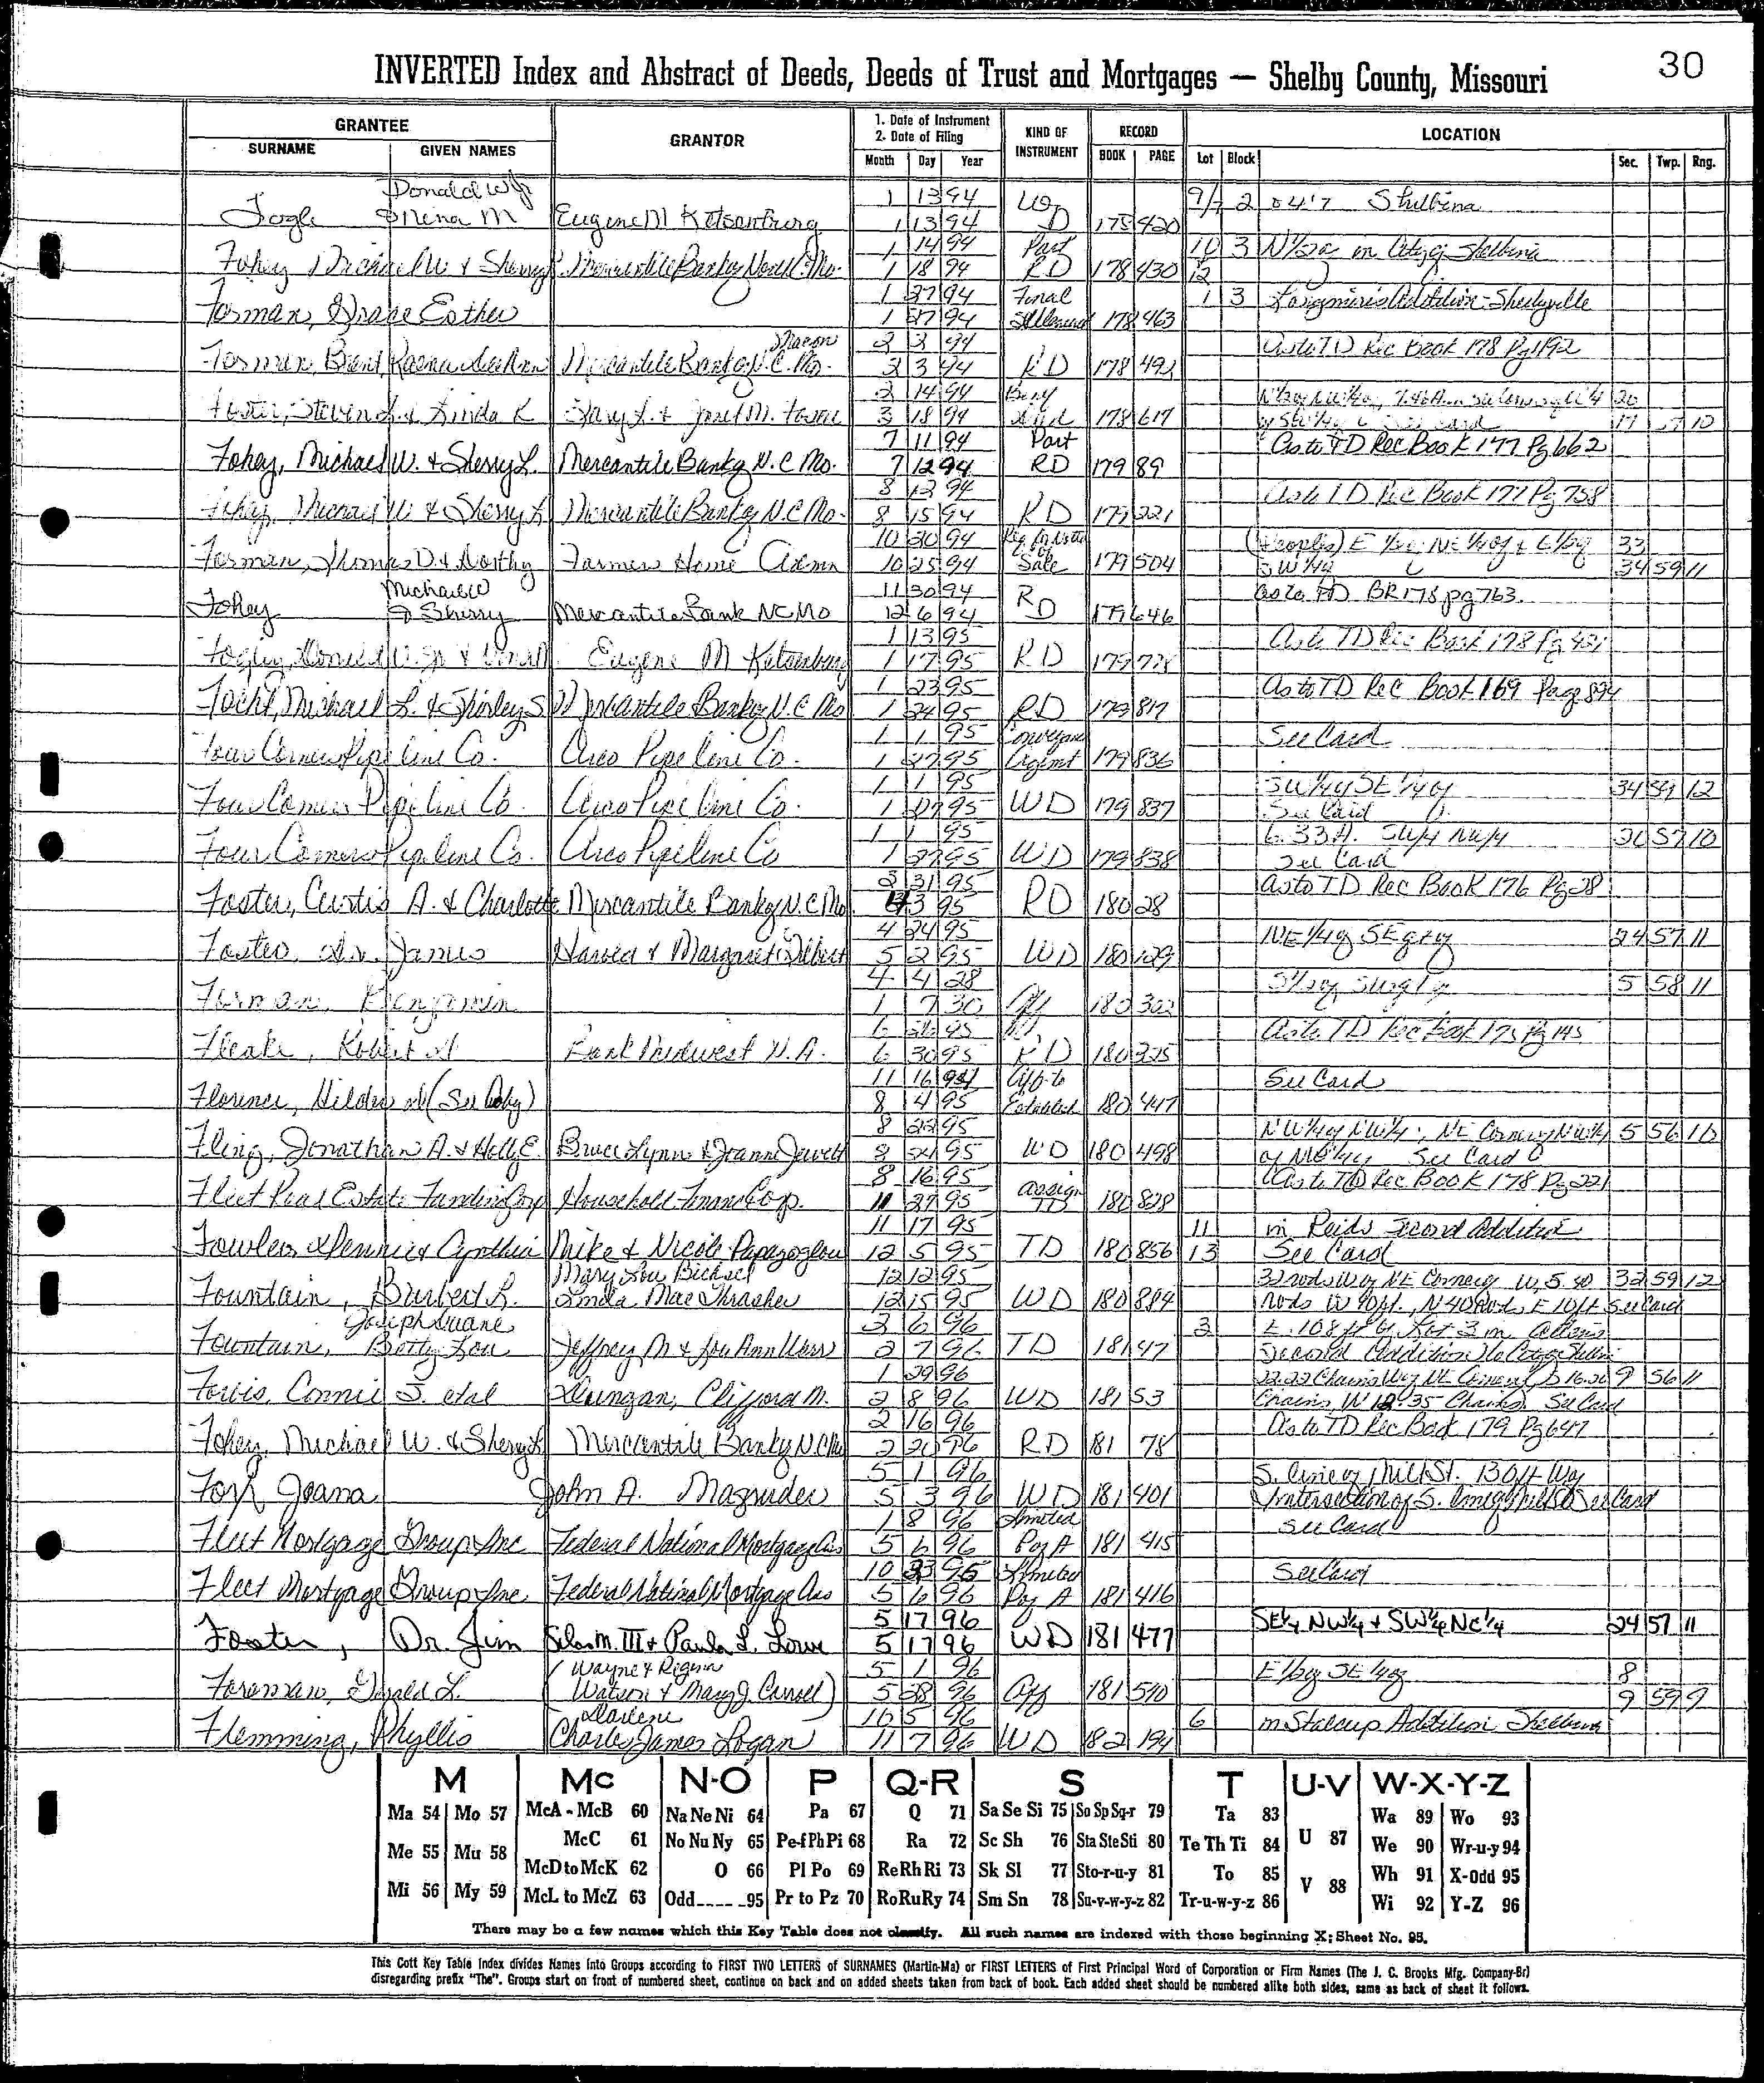 30
INVERTED Index and Abstract of Deeds, Deeds of Trust and Mortgages — Shelby County, Missouri
GRANTEE GRANTOR 1. Date of Instrument 2. Date of Filing KIND OF INSTRUMENT RECORD LOCATION
SURNAME GIVEN NAMES Month Day Year BOOK PAGE Lot Block Sec. Twp. Rng.
Donald W Jr 1 13 94 2 Shelbina
Fogle & Nena M Eugene M 1 13 94 D 178 420
1 14 94 Part 10 3 in City of Shelbina
Fohey Michael W & Sherry Mercantile Bank of North C. Mo. 1 18 94 RD 178 430 12
1 27 94 Final 1 3 Addition - Shelbyville
Forman, Grace Esther 1 27 94 Settlement 178 463
Macon 2 2 94 As to TD Rec Book 178 Pg 192
Forman, Brent Mercantile Bank of N.C. Mo. 2 3 94 RD 178 492
2 14 94 20
Foster, Steven L. & Linda K Gary L. & Janet M. 3 18 94 178 617 17 10
7 11 94 Part As to TD Rec Book 177 Pg 662
Fohey, Michael W. & Sherry L. Mercantile Bank of N.C Mo. 7 12 94 RD 179 89
8 12 94 As to TD Rec Book 177 Pg 758
Fohey, Michael W & Sherry L Mercantile Bank of N.C Mo. 8 15 94 RD 179 221
10 20 94 33
Forman, Thomas D & Dorothy Farmers Home Admn 10 25 94 Sale 179 504 SW 1/4 34 59 11
Michael W 11 30 94 R as to TD BR 178 pg 763
Fohey & Sherry Mercantile Bank NCMO 12 6 94 D 179 646
1 13 95 As to TD Rec Book 178 Pg 421
Eugene M 1 17 95 RD 179 778
1 23 95 As to TD Rec Book 169 Page 894
Michael L. & Shirley S Mercantile Bank of N.C Mo 1 24 95 RD 179 817
1 1 95 Conveyance See Card
Four Corners Pipe Line Co. Arco Pipe Line Co. 1 27 95 Agremt 179 836
1 1 95 SW 1/4 SE 1/4 of 34 59 12
Four Corners Pipe Line Co. Arco Pipe Line Co. 1 27 95 WD 179 837 See Card
1 1 95 6.33 A. SW/4 NW/4 30 57 10
Four Corners Pipe Line Co. Arco Pipe Line Co 1 27 95 WD 179 838 See Card
3 31 95 As to TD Rec Book 176 Pg 28
Foster, Curtis A. & Charlotte Mercantile Bank of N.C Mo. 4 3 95 RD 180 28
4 24 95 NE 1/4 of SE 24 57 11
Foster Dr. James Harold & Margaret 5 2 95 WD 180 129
4 4 28 5 58 11
Forman, Benjamin 1 7 30 Aff 180 302
6 95 As to TD Rec Book 175 Pg 145
Robert Bank Midwest N.A. 6 30 95 RD 180 325
11 16 94 Aff. to See Card
Florence, Hilda M (See Copy) 8 4 95 Established 180 447
8 22 95 NW 1/4 of NW 1/4, NE Corner of NW 1/4 5 56 10
Fling, Jonathan A. & Holly E. Bruce Lynn & Joann Jewett 8 24 95 WD 180 498 of NW 1/4 See Card
8 16 95 Assign As to TD Rec Book 178 Pg 221
Fleet Real Estate Funding Corp Household Finance Corp. 11 27 95 TD 180 828
11 17 95 11 in Reids Second Addition
Fowler, Dennis & Cynthia Mike & Nicole Papazoglou 12 5 95 TD 180 856 13 See Card
Mary Lou Bichsel 12 12 95 32 rods W of NE Corner of W, S. 40 32 59 12
Fountain, Burbert L. Linda Mae Thrasher 12 15 95 WD 180 884 Rods W 40 ft., N 40 Rods, E 10 ft See Card
Joseph Duane 2 6 96 3 E. 108 ft of Lot 3 in
Fountain, Betty Lou Jeffrey M & Lou Ann 2 7 96 TD 181 47 Second Addition to
1 29 96 22.22 Chains W of NE Corner, S 16.20 9 56 11
Forbis, Connie S. etal Dungan, Clifford M. 2 8 96 WD 181 53 Chains, W 12.35 Chains See Card
2 16 96 As to TD Rec Book 179 Pg 647
Fohey, Michael W. & Sherry L Mercantile Bank of N.C Mo 2 20 96 RD 181 78
5 1 96 S. line of Mill St. 130 ft W of
Fox Joana John A. Magruder 5 3 96 WD 181 401 Intersection of S. line of Mill St See Card
1 8 96 Limited See Card
Fleet Mortgage Group Inc Federal National Mortgage Ass 5 6 96 P of A 181 415
10 23 95 Limited See Card
Fleet Mortgage Group Inc. Federal National Mortgage Ass 5 6 96 P of A 181 416
5 17 96 SE 1/4 NW 1/4 + SW 1/4 NE 1/4 24 57 11
Foster, Dr. Jim Silas M. III & Paula L. Lowe 5 17 96 WD 181 477
(Wayne & Regina 5 1 96 E 1/2 of SE 1/4 of 8
Foreman, Donald L. Watson & Mary J. Carroll) 5 28 96 Aff 181 510 9 59 9
Darlene 10 5 96 6 in Stalcup Addition Shelbina
Flemming, Phyllis Charles James Logan 11 7 96 WD 182 194
M Mc N-O P Q-R S T U-V W-X-Y-Z
Ma 54 Mo 57 McA - McB 60 Na Ne Ni 64 Pa 67 Q 71 Sa Se Si 75 So Sp Sq-r 79 Ta 83 Wa 89 Wo 93
Me 55 Mu 58 McC 61 No Nu Ny 65 Pe-f Ph Pi 68 Ra 72 Sc Sh 76 Sta Ste Sti 80 Te Th Ti 84 U 87 We 90 Wr-u-y 94
McD to McK 62 O 66 Pl Po 69 Re Rh Ri 73 Sk Sl 77 Sto-r-u-y 81 To 85 V 88 Wh 91 X-Odd 95
Mi 56 My 59 McL to McZ 63 Odd 95 Pr to Pz 70 Ro Ru Ry 74 Sm Sn 78 Su-v-w-y-z 82 Tr-u-w-y-z 86 Wi 92 Y-Z 96
There may be a few names which this Key Table does not classify. All such names are indexed with those beginning X; Sheet No. 95.
This Cott Key Table Index divides Names into Groups according to FIRST TWO LETTERS of SURNAMES (Martin-Ma) or FIRST LETTERS of First Principal Word of Corporation or Firm Names (The J. C. Brooks Mfg. Company-Br)
disregarding prefix "The". Groups start on front of numbered sheet, continue on back and on added sheets taken from back of book. Each added sheet should be numbered alike both sides, same as back of sheet it follows.